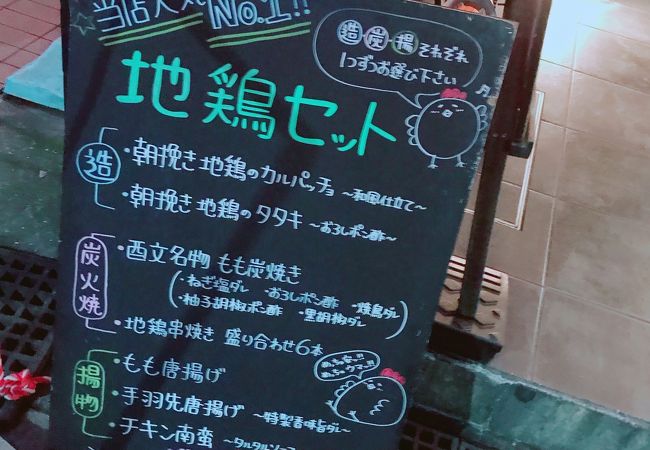 当店人気 No.1!!
造 炭 揚 それぞれ
1つずつお選び下さい
地鶏セット
造
・朝挽き地鶏のカルパッチョ ～和風仕立て～
・朝挽き地鶏のタタキ ～おろしポン酢～
炭火焼
・酉立名物 もも炭焼き
(・ねぎ塩ダレ ・おろしポン酢 ・焼鳥ダレ
・柚子胡椒ポン酢 ・黒胡椒ダレ)
・地鶏串焼き 盛り合わせ6本
揚物
・もも唐揚げ
・手羽先唐揚げ ～特製香味旨ダレ～
・チキン南蛮 ～タルタルソース